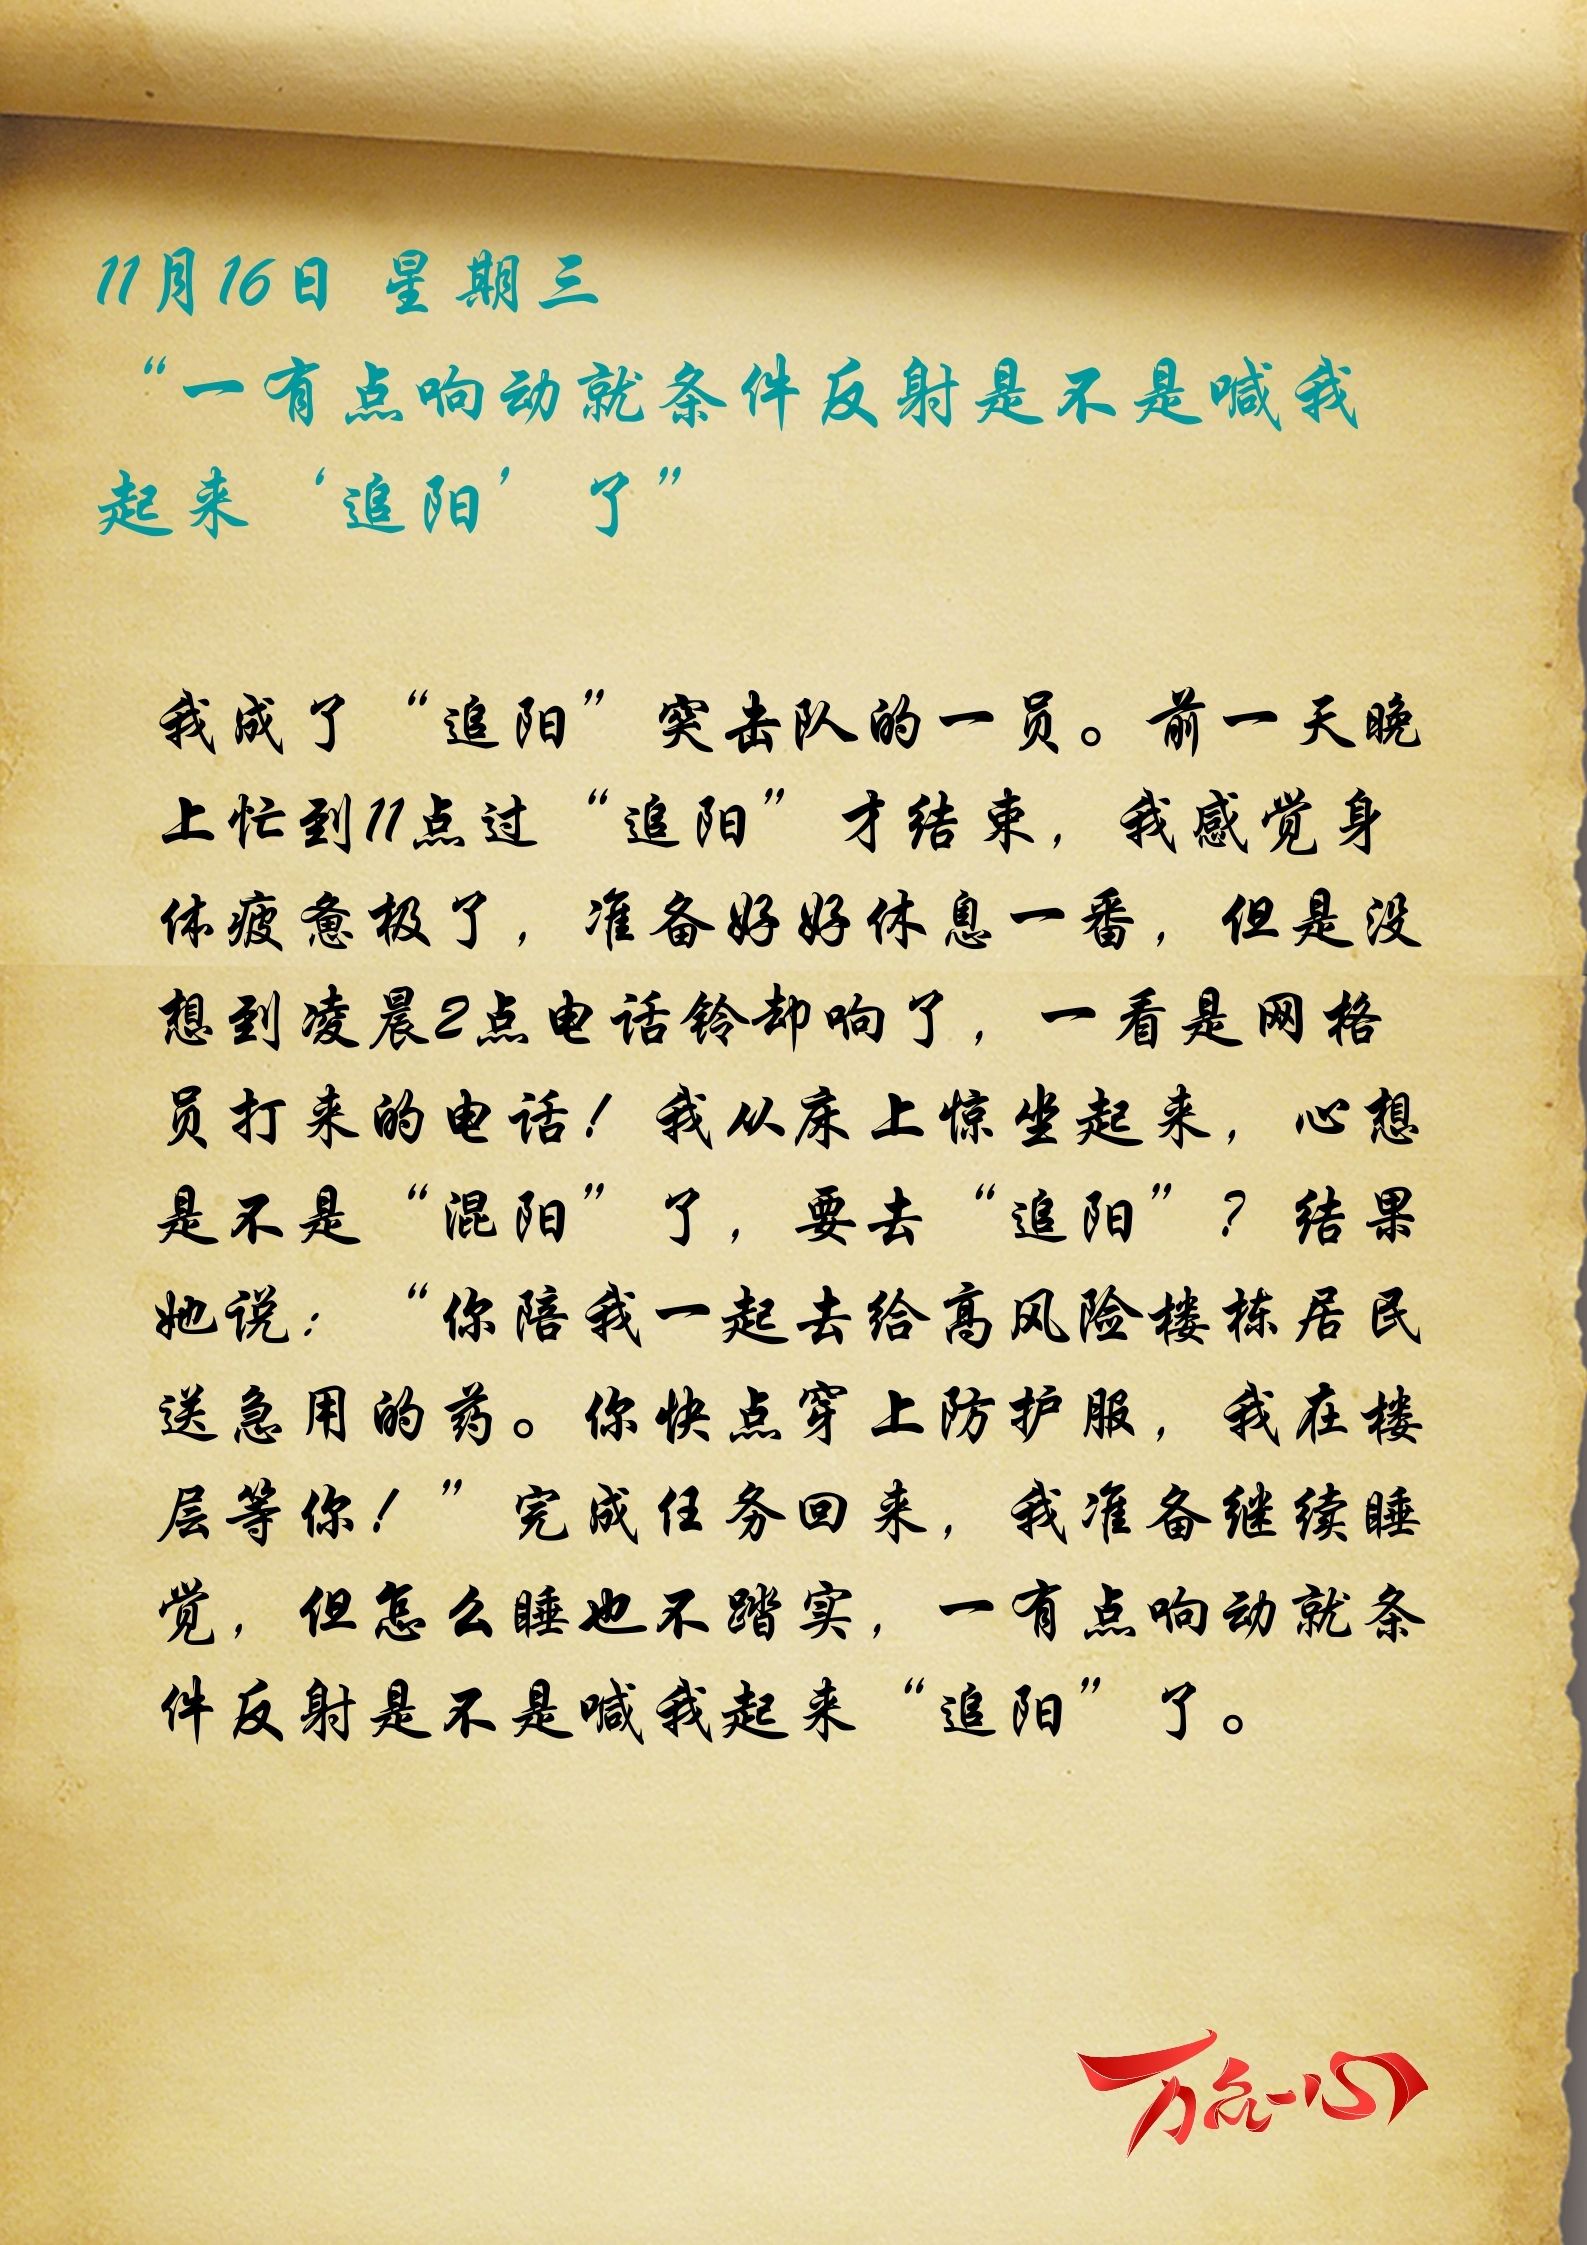 11月16日 星期三
“一有点响动就条件反射是不是喊我
起来‘追阳’了”
我成了“追阳”突击队的一员。前一天晚
上忙到11点过“追阳”才结束，我感觉身
体疲惫极了，准备好好休息一番，但是没
想到凌晨2点电话铃却响了，一看是网格
员打来的电话！我从床上惊坐起来，心想
是不是“混阳”了，要去“追阳”？结果
她说：“你陪我一起去给高风险楼栋居民
送急用的药。你快点穿上防护服，我在楼
层等你！”完成任务回来，我准备继续睡
觉，但怎么睡也不踏实，一有点响动就条
件反射是不是喊我起来“追阳”了。
万众一心